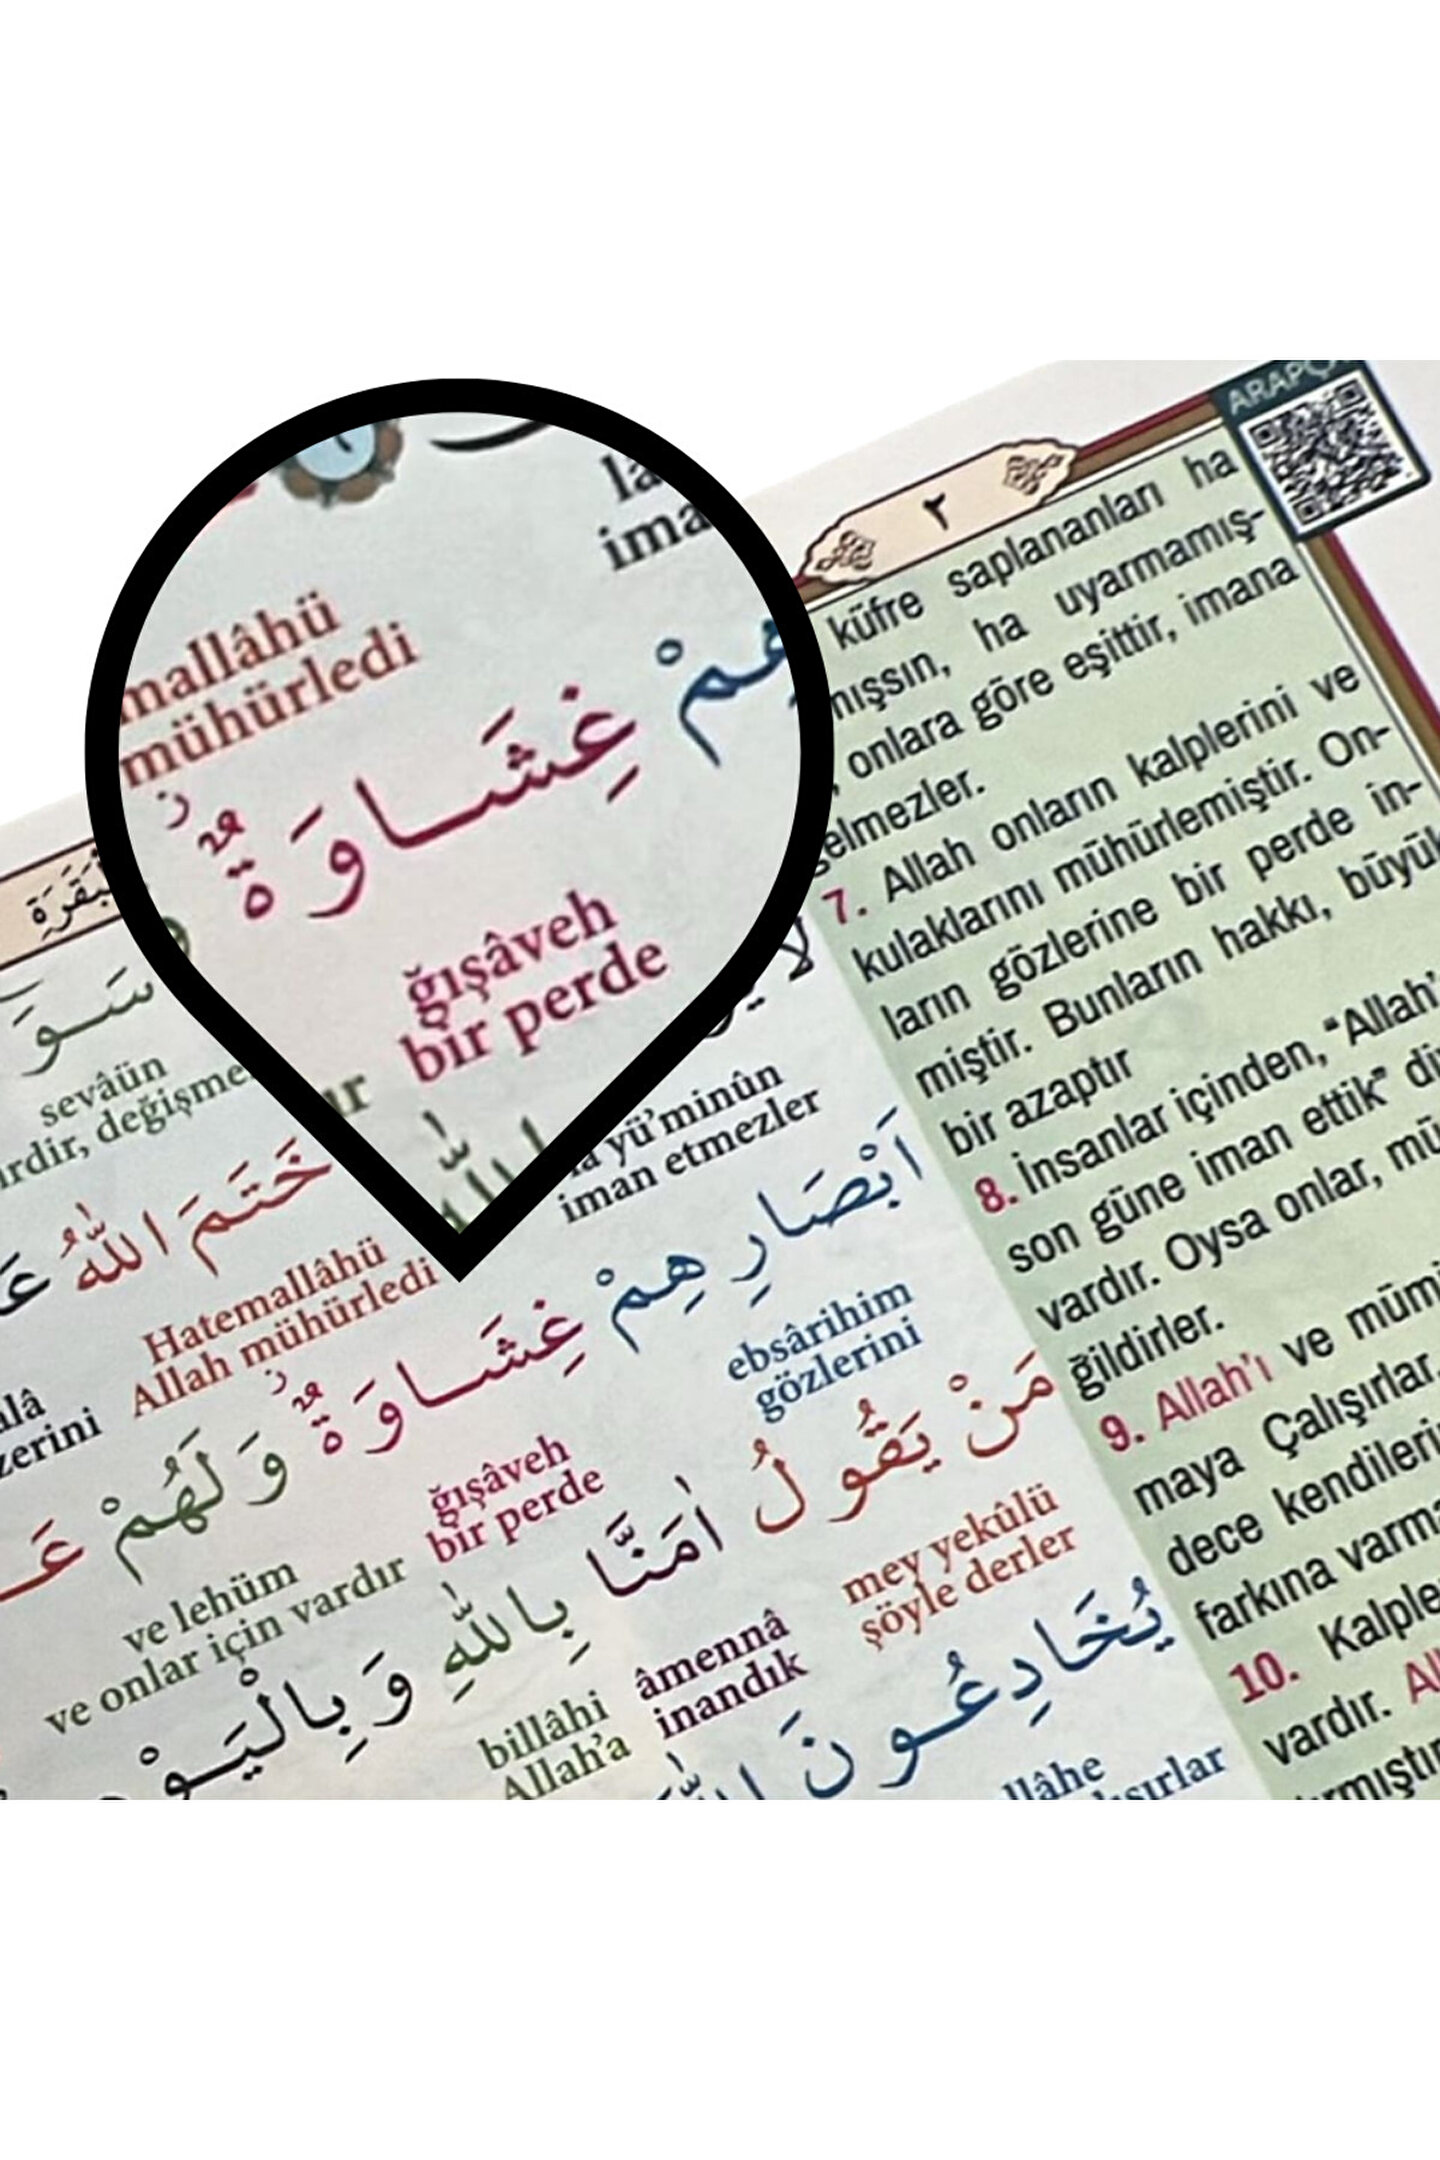 mallâhü
mühürledi
هِمْ
غِشَاوَةٌ
ğışâveh
bir perde
سَوَ
sevâün
خَتَمَ اللّٰهُ
Hatemallâhü
Allah mühürledi
lâ yü'minûn
iman etmezler
اَبْصَارِهِمْ غِشَاوَةٌ وَلَهُمْ
ebsârihim
gözlerini
ğışâveh
bir perde
ve lehüm
ve onlar için vardır
مَنْ يَقُولُ اٰمَنَّا بِاللّٰهِ وَبِالْيَوْ
mey yekûlü
şöyle derler
âmennâ
inandık
billâhi
Allah'a
يُخَادِعُونَ
٢
küfre saplananları ha
mışsın, ha uyarmamış-
onlara göre eşittir, imana
gelmezler.
7. Allah onların kalplerini ve
kulaklarını mühürlemiştir. On-
ların gözlerine bir perde in-
miştir. Bunların hakkı, büyük
bir azaptır
8. İnsanlar içinden, "Allah'
son güne iman ettik"
vardır. Oysa onlar,
ğildirler.
9. Allah'ı ve
maya Çalışırlar.
dece
farkına
10.
vardır.